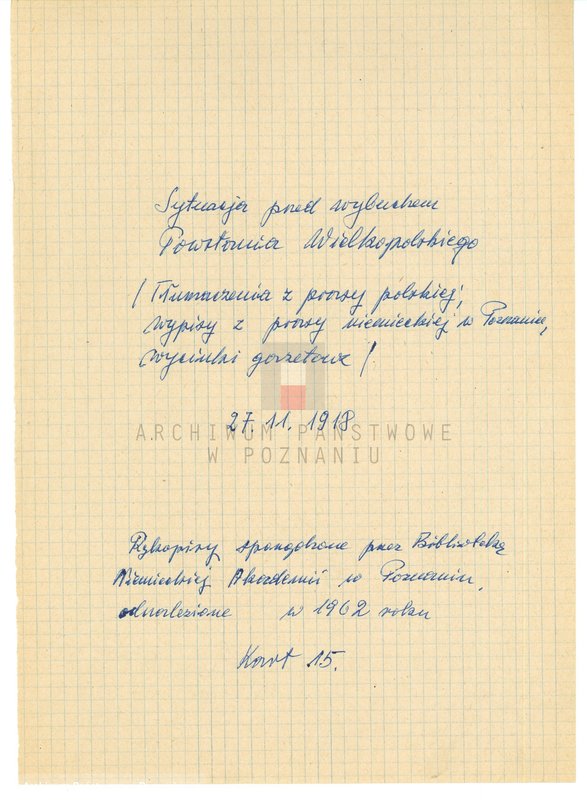 Sytuacja przed wybuchem
Powstania Wielkopolskiego
/Tłumaczenia z prasy polskiej,
wypisy z prasy niemieckiej w Poznaniu,
wycinki gazetowe/
27.11.1918
ARCHIWUM PAŃSTWOWE
W POZNANIU
Rękopisy sporządzone przez Bibliotekę
Niemieckiej Akademii w Poznaniu,
odnalezione w 1962 roku
Kart 15.